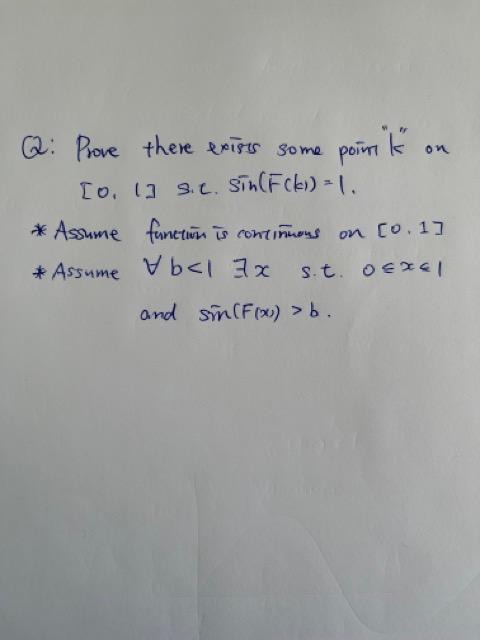 Q: Prove there exists some point "k" on
[0, 1] s.t. sin(F(k)) = 1.
* Assume function is continuous on [0, 1]
* Assume ∀ b < 1 ∃ x s.t. 0 ≤ x ≤ 1
and sin(F(x)) > b.